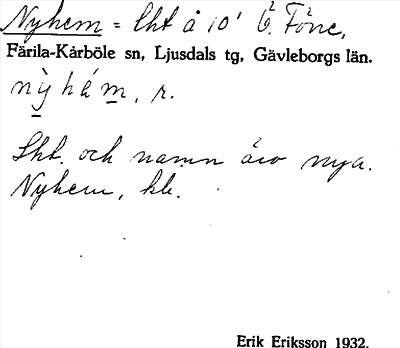 Nyhem = lht å 10' Ö. Föne,
Färila-Kårböle sn, Ljusdals tg, Gävleborgs län.
nỳhém, r.
Lht. och namn äro nya.
Nyhem, kb.
Erik Eriksson 1932.